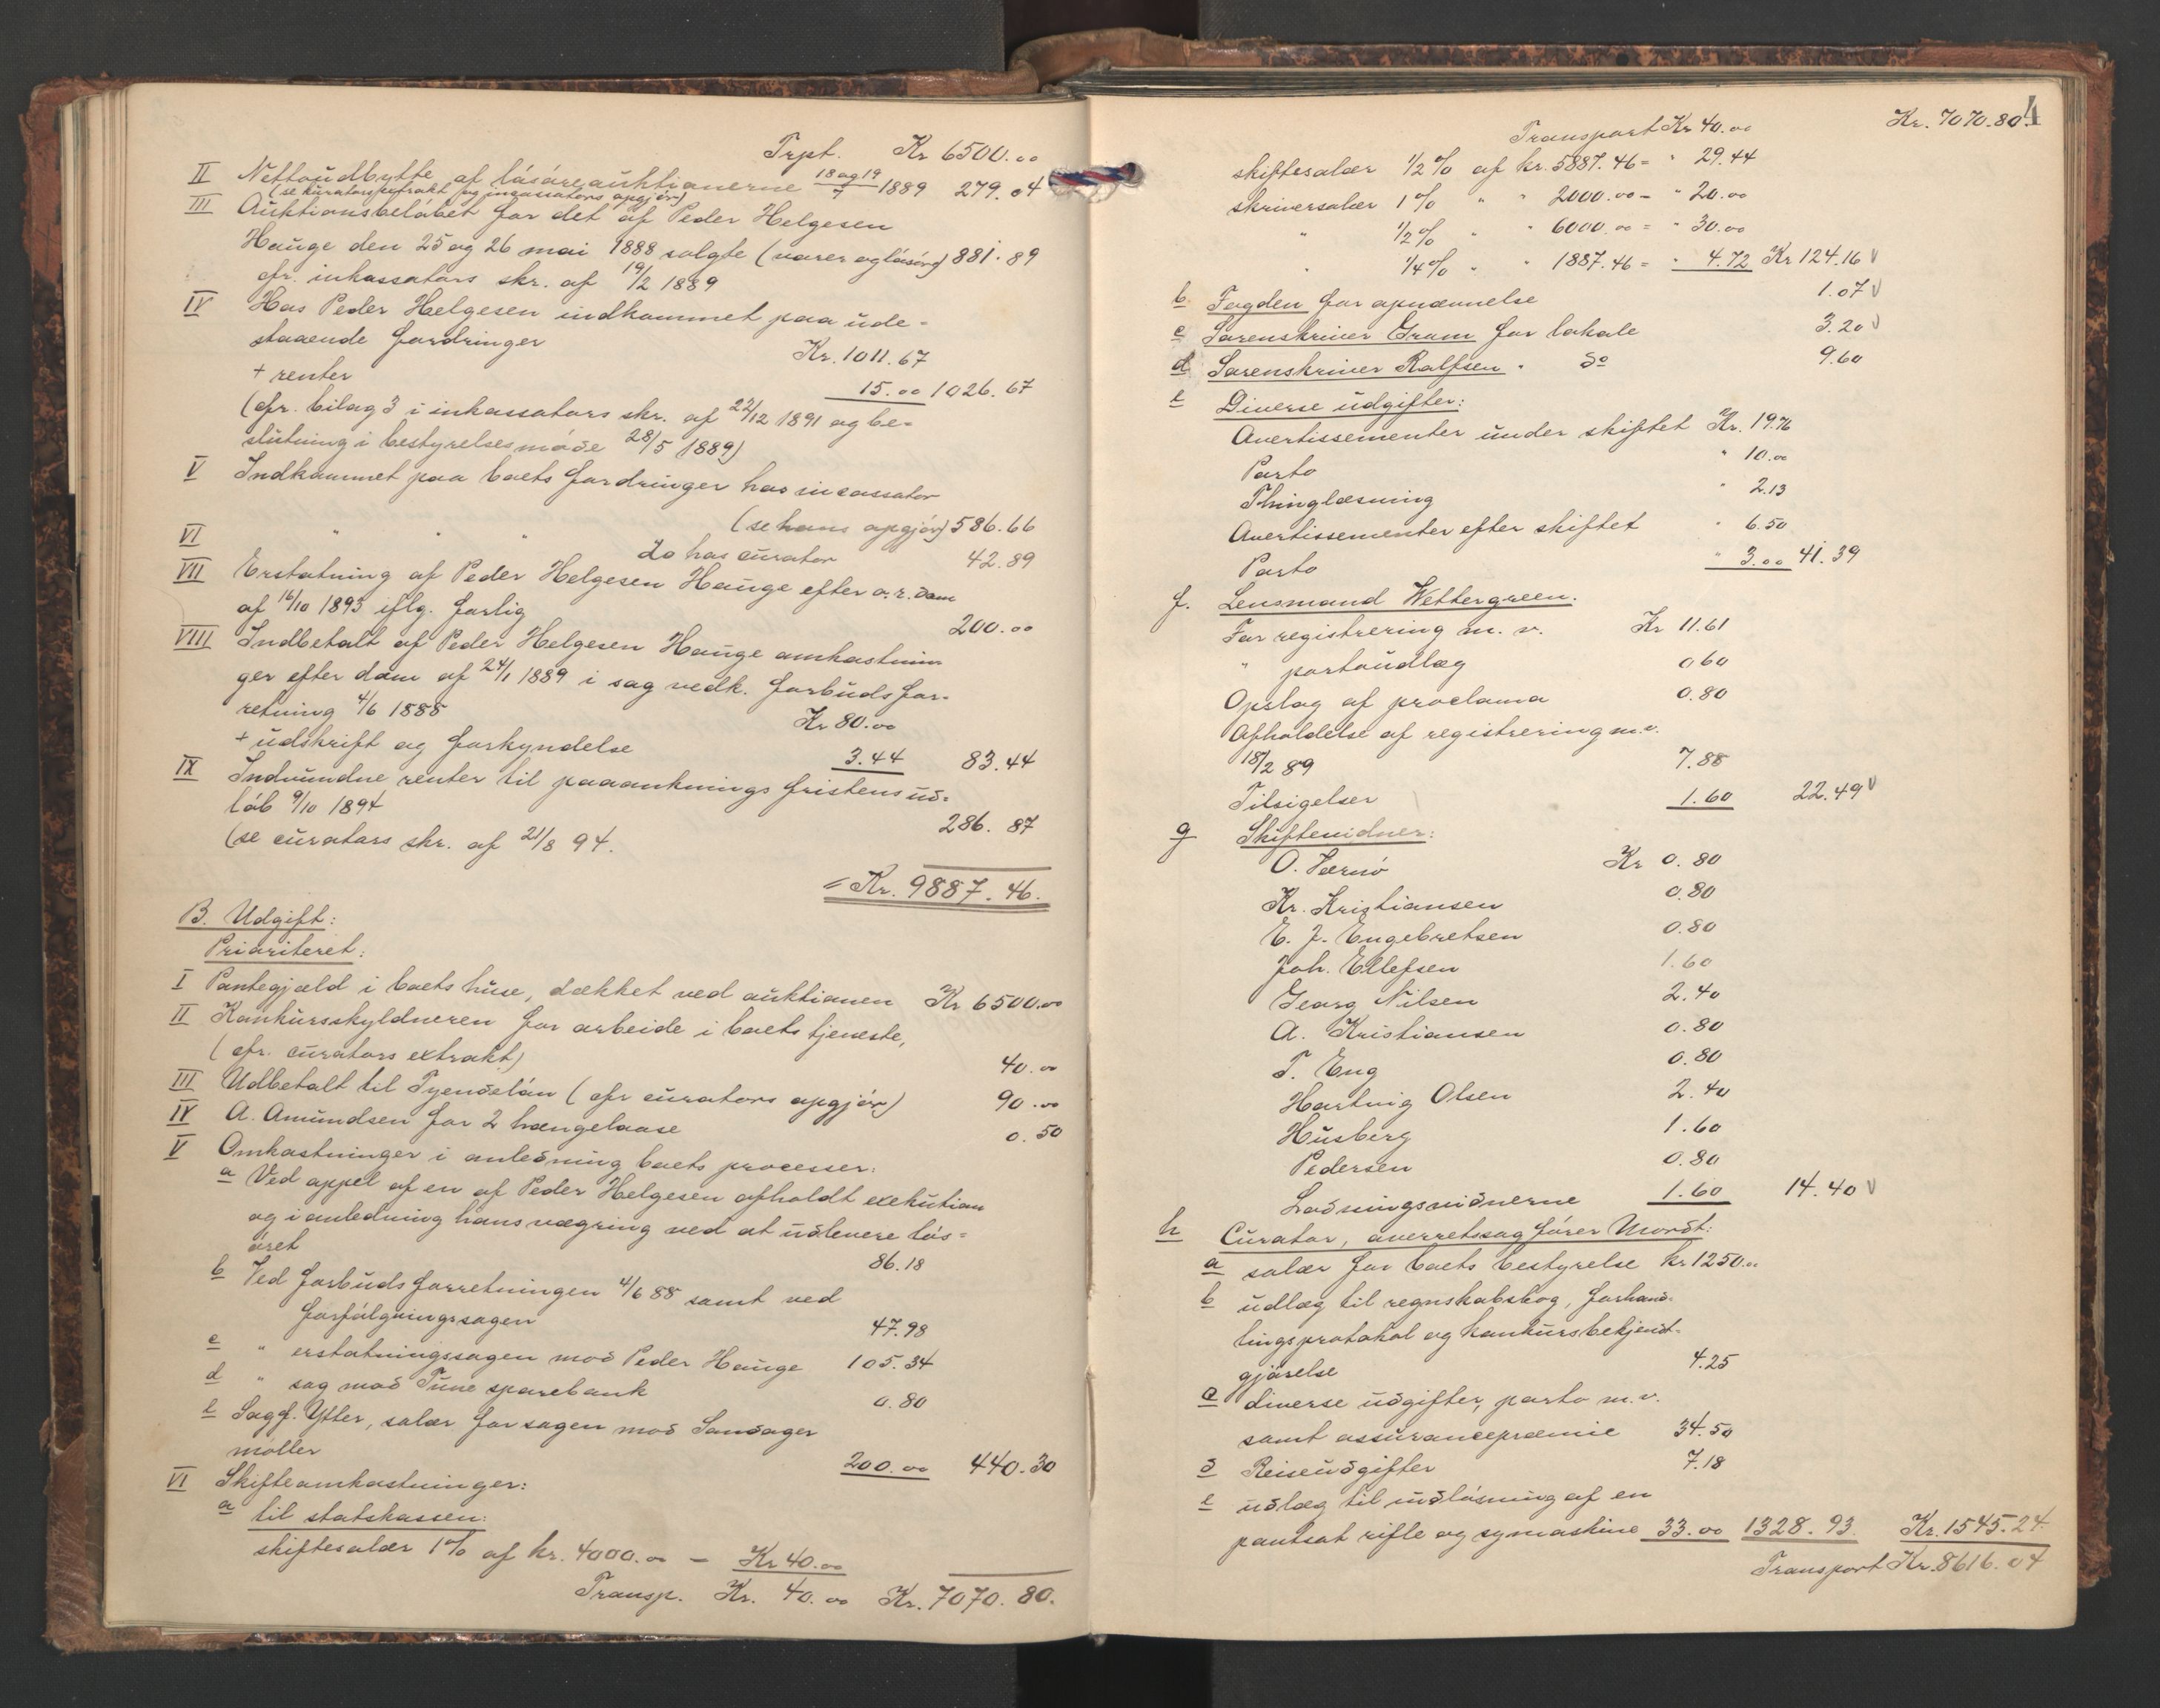 Trpt. Kr 6500.00
II Nettoudbytte af lösöreauktionerne 18 og 19/7 1889 279.04
(se kurators extrakt og incassators opgjör)
III Auktionsbelöbet for det af Peder Helgesen
Hauge den 25 og 26 mai 1888 solgte (varer og lösöre) 881.89
cfr. inkassators skr. af 19/2 1889
IV Hos Peder Helgesen indkommet paa ude-
staaende fordringer Kr. 1011.67
+ renter 15.00 1026.67
(cfr. bilag 3 i inkassators skr. af 22/12 1891 og be-
slutning i bestyrelsesmöde 28/5 1889)
V Indkommet paa boets fordringer hos incassator
(se hans opgjör) 586.66
VI " " " do hos curator 42.89
VII Erstatning af Peder Helgesen Hauge efter o.r. dom
af 16/10 1893 iflg. forlig 200.00
VIII Indbetalt af Peder Helgesen Hauge omkostnin-
ger efter dom af 24/1 1889 i sag vedk. forbudsfor-
retning 4/6 1888 Kr 80.00
+ udskrift og forkyndelse 3.44 83.44
IX Indvundne renter til paaanknings fristens ud-
löb 9/10 1894
(se curators skr. af 21/8 94. 286.87
= Kr. 9887.46.
B. Udgift:
Prioriteret:
I Pantegjæld i boets huse, dækket ved auktionen Kr 6500.00
II Konkursskyldneren for arbeide i boets tjeneste,
(cfr. curators extrakt) 40.00
III Udbetalt til Tyendelön (cfr curators opgjör) 90.00
IV A. Amundsen for 2 hængelaase 0.50
V Omkostninger i anledning boets processer:
a Ved appel af en af Peder Helgesen afholdt exekution
og i anledning hans vægring ved at udlevere lös-
öret 86.18
b Ved forbudsforretningen 4/6 88 samt ved
forfölgningssagen 47.98
c " erstatningssagen mod Peder Hauge 105.34
d " sag mod Tune sparebank 0.80
e Sagf. Ytter, salær for sagen mod Sandager
möller 200.00 440.30
VI Skifteomkostninger:
a til statskassen:
skiftesalær 1% af kr. 4000.00 — Kr 40.00
Transp. Kr. 40.00 Kr. 7070.80.
4
Transport Kr 40.00 Kr. 7070.80.
skiftesalær 1/2% af kr. 5887.46 = " 29.44
skriversalær 1% " " 2000.00 - " 20.00
" 1/2% " " 6000.00 = " 30.00
" 1/4% " " 1887.46 = " 4.72 Kr 124.16 V
b Fogden for opnævnelse 1.07 V
c Sorenskriver Gram for lokale 3.20 V
d Sorenskriver Rolfsen " do 9.60
e Diverse udgifter:
Avertissementer under skiftet Kr. 19.76
Porto " 10.00
Thinglæsning " 2.13
Avertissementer efter skiftet " 6.50
Porto " 3.00 41.39
f. Lensmand Wettergreen.
For registrering m. v. Kr 11.61
" portoudlæg 0.60
Opslag af proclama 0.80
Afholdelse af registrering m.v.
18/2 89 7.88
Tilsigelser 1.60 22.49 V
g Skiftevidner:
O. Værnö Kr 0.80
Kr. Kristiansen 0.80
E. J. Engebretsen 0.80
Joh. Ellefsen 1.60
Georg Nilsen 2.40
A. Kristiansen 0.80
T. Eng 0.80
Hartvig Olsen 2.40
Husberg 1.60
Pedersen 0.80
Lodningsvidnerne 1.60 14.40 V
h Curator, overretssagförer Mordt:
a salær for boets bestyrelse kr 1250.00
b udlæg til regnskabsbog, forhand-
lingsprotokol og konkursbekjendt-
gjörelse 4.25
c diverse udgifter, porto m. v.
samt assurancepræmie 34.50
d Reiseudgifter 7.18
e udlæg til indlösning af en
pantsat rifle og symaskine 33.00 1328.93 Kr. 1545.24
Transport Kr. 8616.04